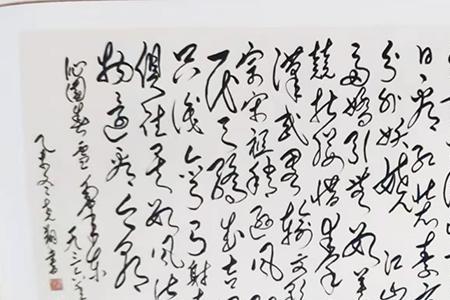 日看红装素
分外妖娆江山
多娇引无数英
竞折腰惜秦
汉武略输文
宗宋祖稍逊风
一代天骄成吉
只识弯弓射
俱往矣数风流
物还看今朝
沁园春雪毛泽东一九三六年
乙未冬